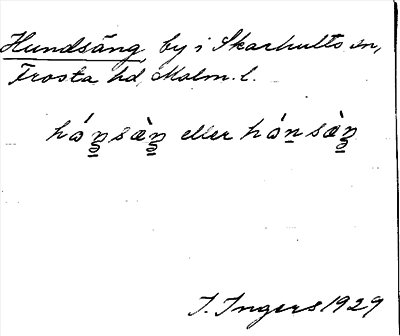 Hundsäng by i Skarhults sn,
Frosta hd, Malm. l.
hóŋ̲sàŋ̲ eller hón̲sàŋ̲
I. Ingers 1929